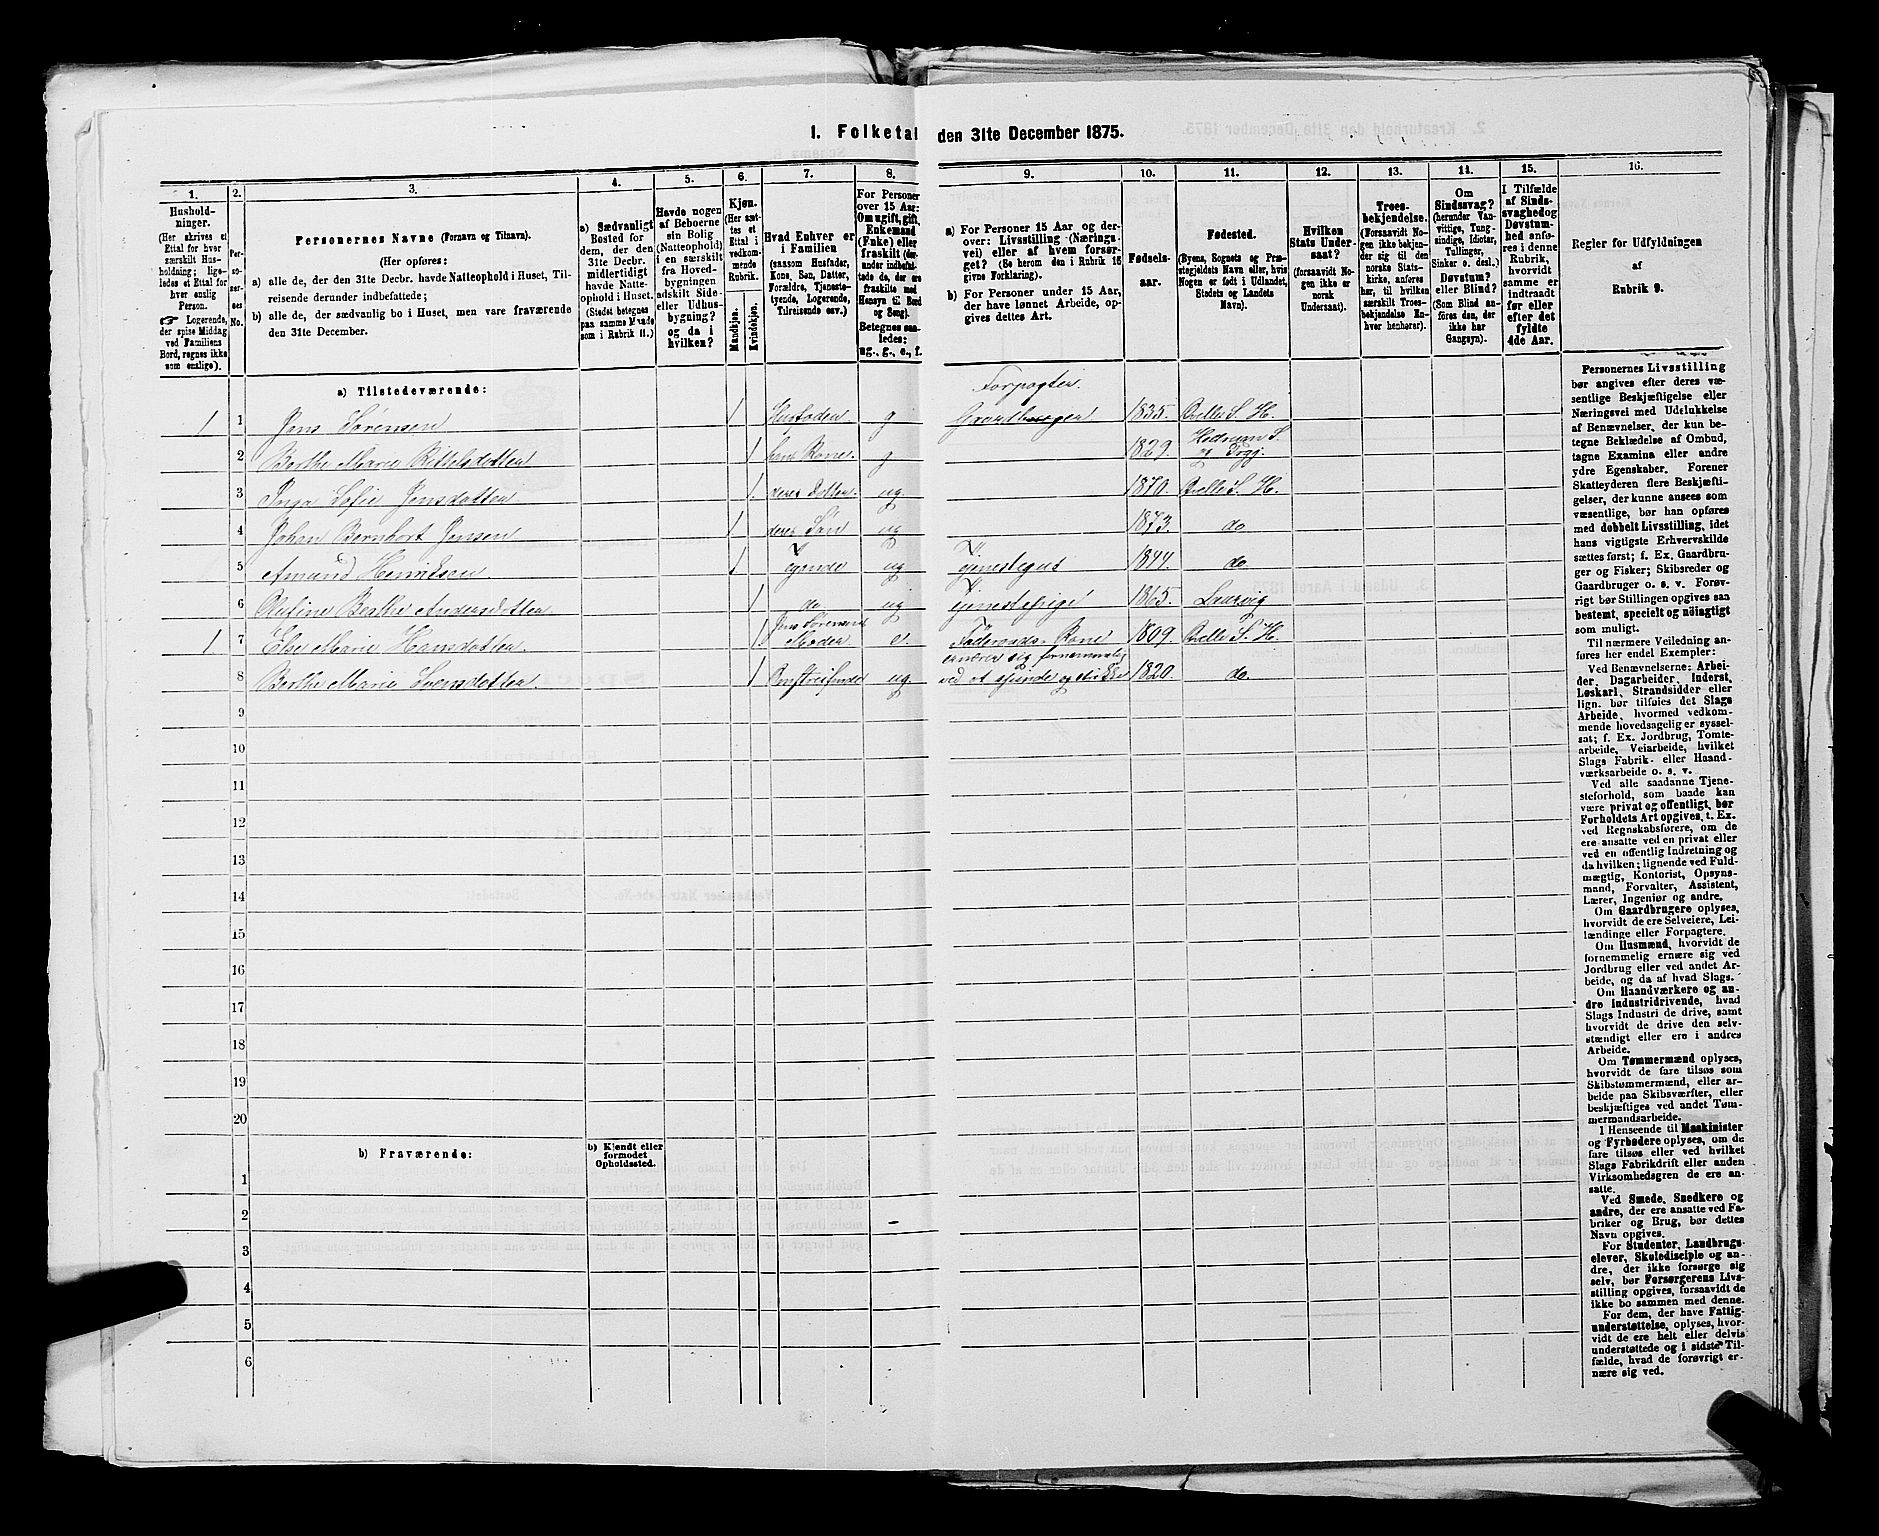 1. Folketal den 31te December 1875.
1.
2.
3.
4.
5.
6.
7.
8.
9.
10.
11.
12.
13.
14.
15.
16.
Husholdninger.
(Her skrives et
Ettal for hver
særskilt Husholdning;
ligeledes et Ettal for
hver enslig
Person.
☞ Logerende,
der spise Middag
ved Familiens
Bord, regnes ikke
som enslige).
Personernes No.
Personernes Navne (Fornavn og Tilnavn).
(Her opføres:
a) alle de, der den 31te Decbr. havde Natteophold i Huset, Tilreisende derunder indbefattede;
b) alle de, der sædvanlig bo i Huset, men vare fraværende
den 31te December.
a) Sædvanligt
Bosted for
dem, der den
31te Decbr.
midlertidigt
havde Natteophold i Huset.
(Stedet betegnes
paa samme Maade
som i Rubrik 11.)
Havde nogen
af Beboerne
sin Bolig
(Natteophold)
i en særskilt
fra Hovedbygningen
adskilt Side-
eller Udhusbygning?
og da i
hvilken?
Kjøn.
(Her sættes et
Ettal i
vedkommende
Rubrik.
Mandkjøn.
Kvindekjøn.
Hvad Enhver er
i Familien
(saasom Husfader,
Kone, Søn, Datter,
Forældre, Tjenestetyende, Logerende,
Tilreisende osv.)
For Personer
over 15 Aar:
Om ugift, gift,
Enkemand
(Enke) eller
fraskilt (derunder indbefattede de, der ere
fraskilte med
Hensyn til Bord
og Seng).
Betegnes saaledes:
ug., g., e., f.
a) For Personer 15 Aar og derover: Livsstilling (Næringsvei) eller af hvem forsørget? (Se herom den i Rubrik 16
givne Forklaring).
b) For Personer under 15 Aar,
der have lønnet Arbeide, opgives dettes Art.
Fødselsaar.
Fødested.
(Byens, Sognets og Præstegjeldets Navn eller, hvis
Nogen er født i Udlandet,
Stedets og Landets
Navn).
Hvilken
Stats Undersaat?
(forsaavidt Nogen ikke er
norsk
Undersaat).
Troesbekjendelse.
(Forsaavidt Nogen ikke bekjender sig til den
norske Statskirke, anføres
her, til hvilken
særskilt Troesbekjendelse Enhver henhører).
Om
Sindssvag?
(herunder Vanvittige, Tungsindige, Idioter,
Tullinger,
Sinker o. desl.)
Døvstum?
eller Blind?
(Som Blind anføres den, der
ikke har
Gangsyn).
I Tilfælde
af Sindssvaghed og
Døvstumhed anføres i denne
Rubrik,
hvorvidt
samme er
indtraadt
før eller
efter det
fyldte
4de Aar.
Regler for Udfyldningen
af
Rubrik 9.
a) Tilstedeværende:
Forpagter
1 1 Jens Sørensen 1 Husfader g Gaardbruger 1835. Qvelle S. H.
2 Berthe Marie Kittelsdatter 1 hans Kone g 1829. Hedrum S. og Prgj.
3 Inga Sofie Jensdatter 1 deres Datter ug 1870. Qvelle S. H.
4 Johan Bernhart Jensen 1 deres Søn ug 1873. do
5 Amund Henriksen 1 Tjende ug Tjenestegut 1844. do
6 Andersdatter 1 do ug Tjenestepige 1865. Laurvig
1 7 Else Marie Hansdatter 1 Jens Sørensens Moder e. Føderaads-Kone 1809. Qvelle S. H.
8 Berthe Marie Svensdatter 1 ug. ernærer sig fornemmelig ved at spinde og strikke 1820. do.
9
10
11
12
13
14
15
16
17
18
19
20
b) Fraværende:
b) Kjendt eller
formodet
Opholdssted.
1
2
3
4
5
6
Personernes Livsstilling
bør angives efter deres væsentlige Beskjæftigelse eller
Næringsvei med Udelukkelse
af Benævnelser, der kun betegne Beklædelse af Ombud,
tagne Examina eller andre
ydre Egenskaber. Forener
Skatteyderen flere Beskjæftigelser, der kunne ansees som
væsentlige, bør han opføres
med dobbelt Livsstilling, idet
hans vigtigste Erhvervskilde
sættes først; f. Ex. Gaardbruger og Fisker; Skibsreder og
Gaardbruger o. s. v. Forøvrigt bør Stillingen opgives saa
bestemt, specielt og nöiagtigt
som muligt.
Til nærmere Veiledning anføres her endel Exempler:
Ved Benævnelserne: Arbeider, Dagarbeider, Inderst,
Løskarl, Strandsidder eller
lign. bør tilføies det Slags
Arbeide, hvormed vedkommende hovedsagelig er sysselsat; f. Ex. Jordbrug, Tomtearbeide, Veiarbeide, hvilket
Slags Fabrik- eller Haandværksarbeide o. s. v.
Ved alle saadanne Tjenesteforhold, som baade kan
være privat og offentligt, bør
Forholdets Art opgives, t. Ex.
ved Regnskabsførere, om de
ere ansatte ved en privat eller
ved en offentlig Indretning og
da hvilken; lignende ved Fuldmægtig, Kontorist, Opsynsmand, Forvalter, Assistent,
Lærer, Ingeniør og andre.
Om Gaardbrugere oplyses,
hvorvidt de ere Selveiere, Leilændinge eller Forpagtere.
Om Husmænd, hvorvidt de
fornemmelig ernære sig ved
Jordbrug eller ved andet Arbeide, og da af hvad Slags.
Om Haandværkere og andre Industridrivende, hvad
Slags Industri de drive, samt
hvorvidt de drive den selvstændigt eller ere i andres
Arbeide.
Om Tømmermænd oplyses,
hvorvidt de fare tilsøs som
Skibstømmermænd, eller arbeide paa Skibsværfter, eller
beskjæftiges ved andet Tømmermandsarbeide.
I Henseende til Maskinister
og Fyrbødere oplyses, om de
fare tilsøs eller ved hvilket
Slags Fabrikdrift eller anden
Virksomhedsgren de ere ansatte.
Ved Smede, Snedkere og
andre, der ere ansatte ved Fabriker og Brug, bør dettes
Navn opgives.
For Studenter, Landbrugselever, Skoledisciple og andre, der ikke forsørge sig
selv, bør Forsørgerens Livsstilling opgives, forsaavidt de
ikke bo sammen med denne.
For dem, der have Fattigunderstøttelse, oplyses, hvorvidt de ere helt eller delvis
understøttede og i sidste Tilfælde, hvad de forøvrigt ernære sig ved.